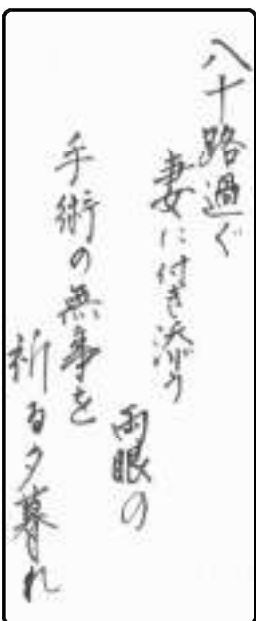 八十路過ぐ
妻に付き添う
両眼の
手術の無事を
祈る夕暮れ